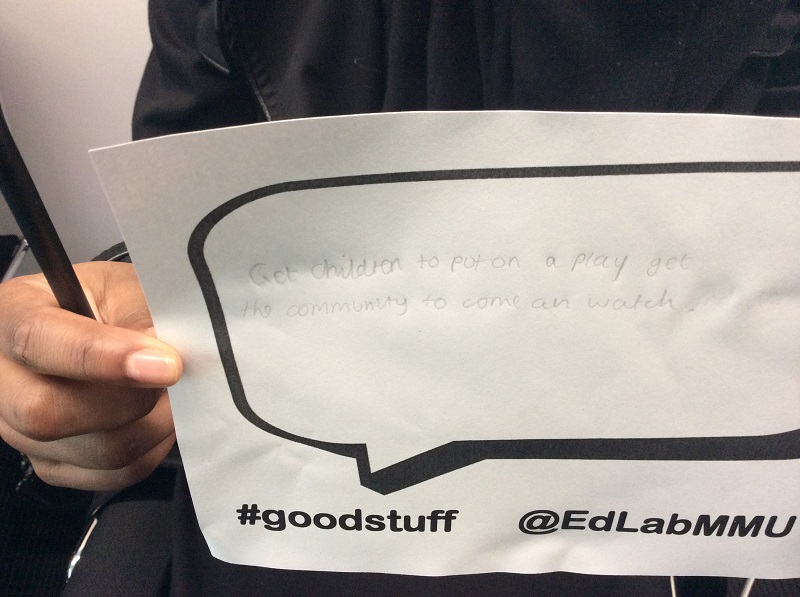 Get children to put on a play get
the community to come an watch.
#goodstuff @EdLabMMU